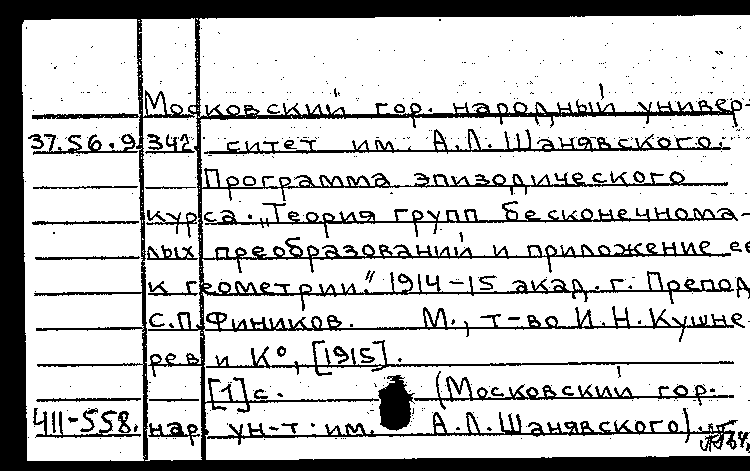 Московский гор. народный универ-
37.56.9.342. ситет им. А.Л.Шанявского.
Программа эпизодического
курса. „Теория групп бесконечнома-
лых преобразований и приложение ее
к геометрии.“ 1914-15 акад. г. Препод.
С.П.Фиников. М., т-во И.Н.Кушне-
рев и К°, [1915].
[1]с. (Московский гор.
411-558. нар. ун-т им. А.Л.Шанявского).